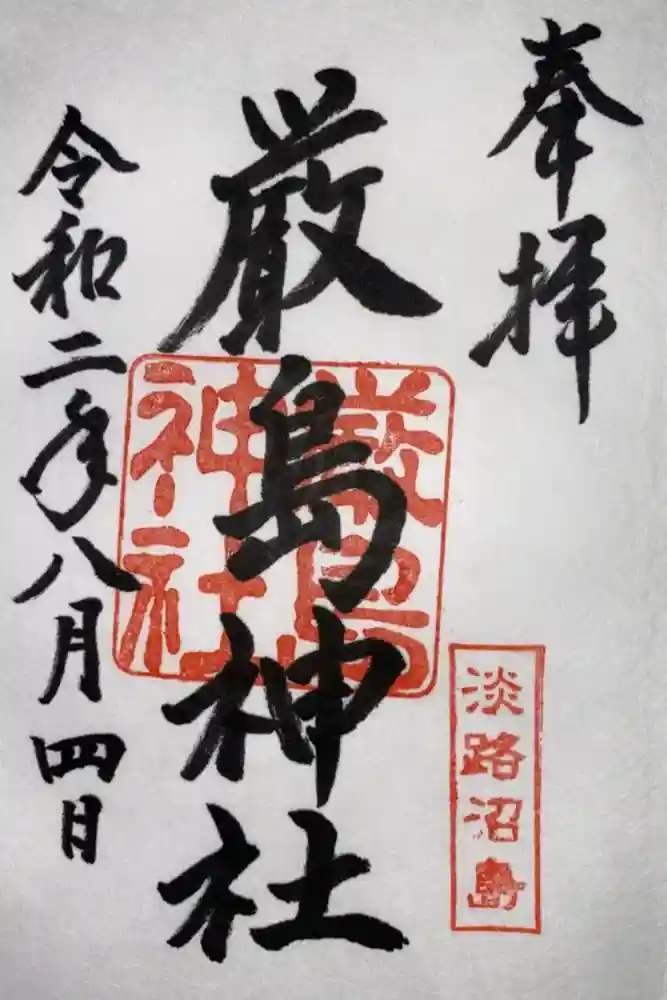 奉拝
厳島神社
厳島神社
淡路沼島
令和二年八月四日